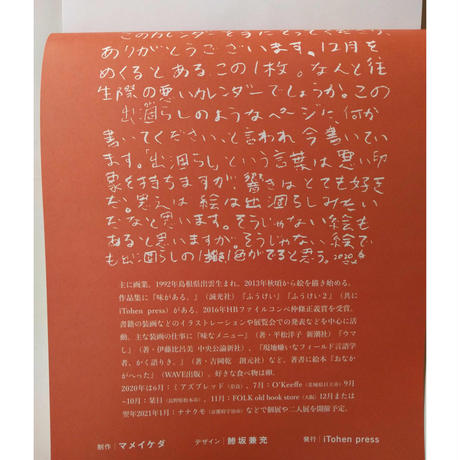 このカレンダーを手にとってくださり
ありがとうございます。12月を
めくるとある、この1枚。なんと往
生際の悪いカレンダーでしょうか。この
出涸らしのようなページに、何か
書いてください、と言われ今書いてい
ます。「出涸らし」という言葉は悪い印
象を持ちますが、響きはとても好き
だ。思えば絵は出涸らしみたい
だなと思います。そうじゃない絵も
あると思いますが。そうじゃない、絵で
も出涸らしの！味がでると思う。2020.6
主に画業。1992年島根県出雲生まれ。2013年秋頃から絵を描き始める。
作品集に『味がある。』（誠光社）『ふうけい』『ふうけい2』（共に
iTohen press）がある。2016年HBファイルコンペ仲條正義賞を受賞。
書籍の装画などのイラストレーションや展覧会での発表などを中心に活
動。主な装画の仕事に『味なメニュー』（著・平松洋子 新潮社）『ウマ
し』（著・伊藤比呂美 中央公論新社）、『現地嫌いなフィールド言語学
者、かく語りき。』（著・吉岡乾　創元社）など。著書に絵本『おなか
がへった』（WAVE出版）。好きな食べ物は卵。
2020年は6月：ミアズブレッド（奈良）、7月：O'Keeffe（茨城県日立市）9月
~10月：栞日（長野県松本市）、11月：FOLK old book store（大阪）12月または
翌年2021年1月：ナナクモ（京都府宇治市）などで個展や二人展を開催予定。
制作｜マメイケダ　デザイン｜勝坂兼充　発行｜iTohen press